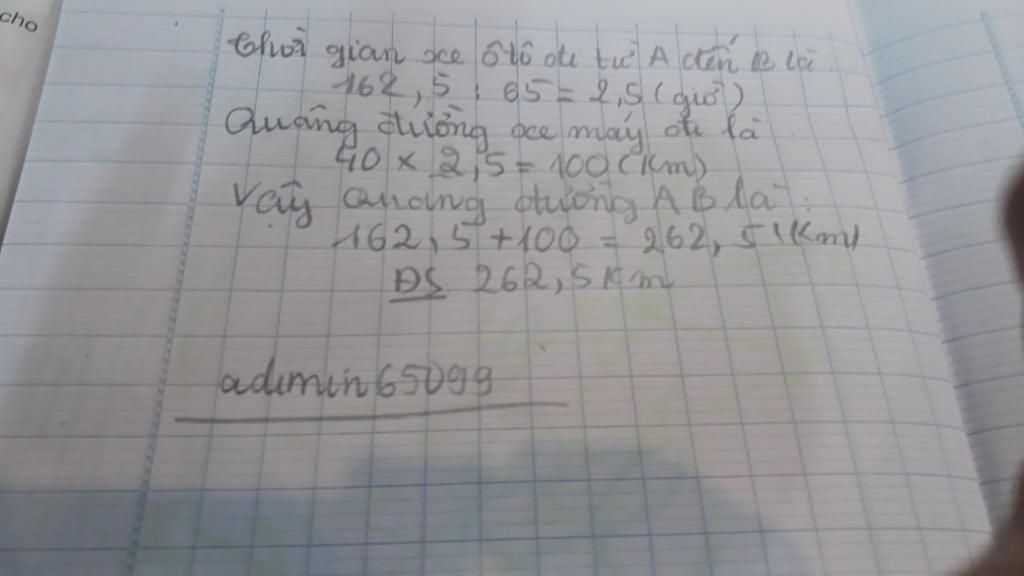 cho
Thời gian xe ô tô đi từ A đến B là:
162,5 : 65 = 2,5 (giờ)
Quãng đường xe máy đi là
40 × 2,5 = 100 (Km)
Vậy Quãng đường AB là:
162,5 + 100 = 262,5 (Km)
ĐS 262,5 Km
adimin65099